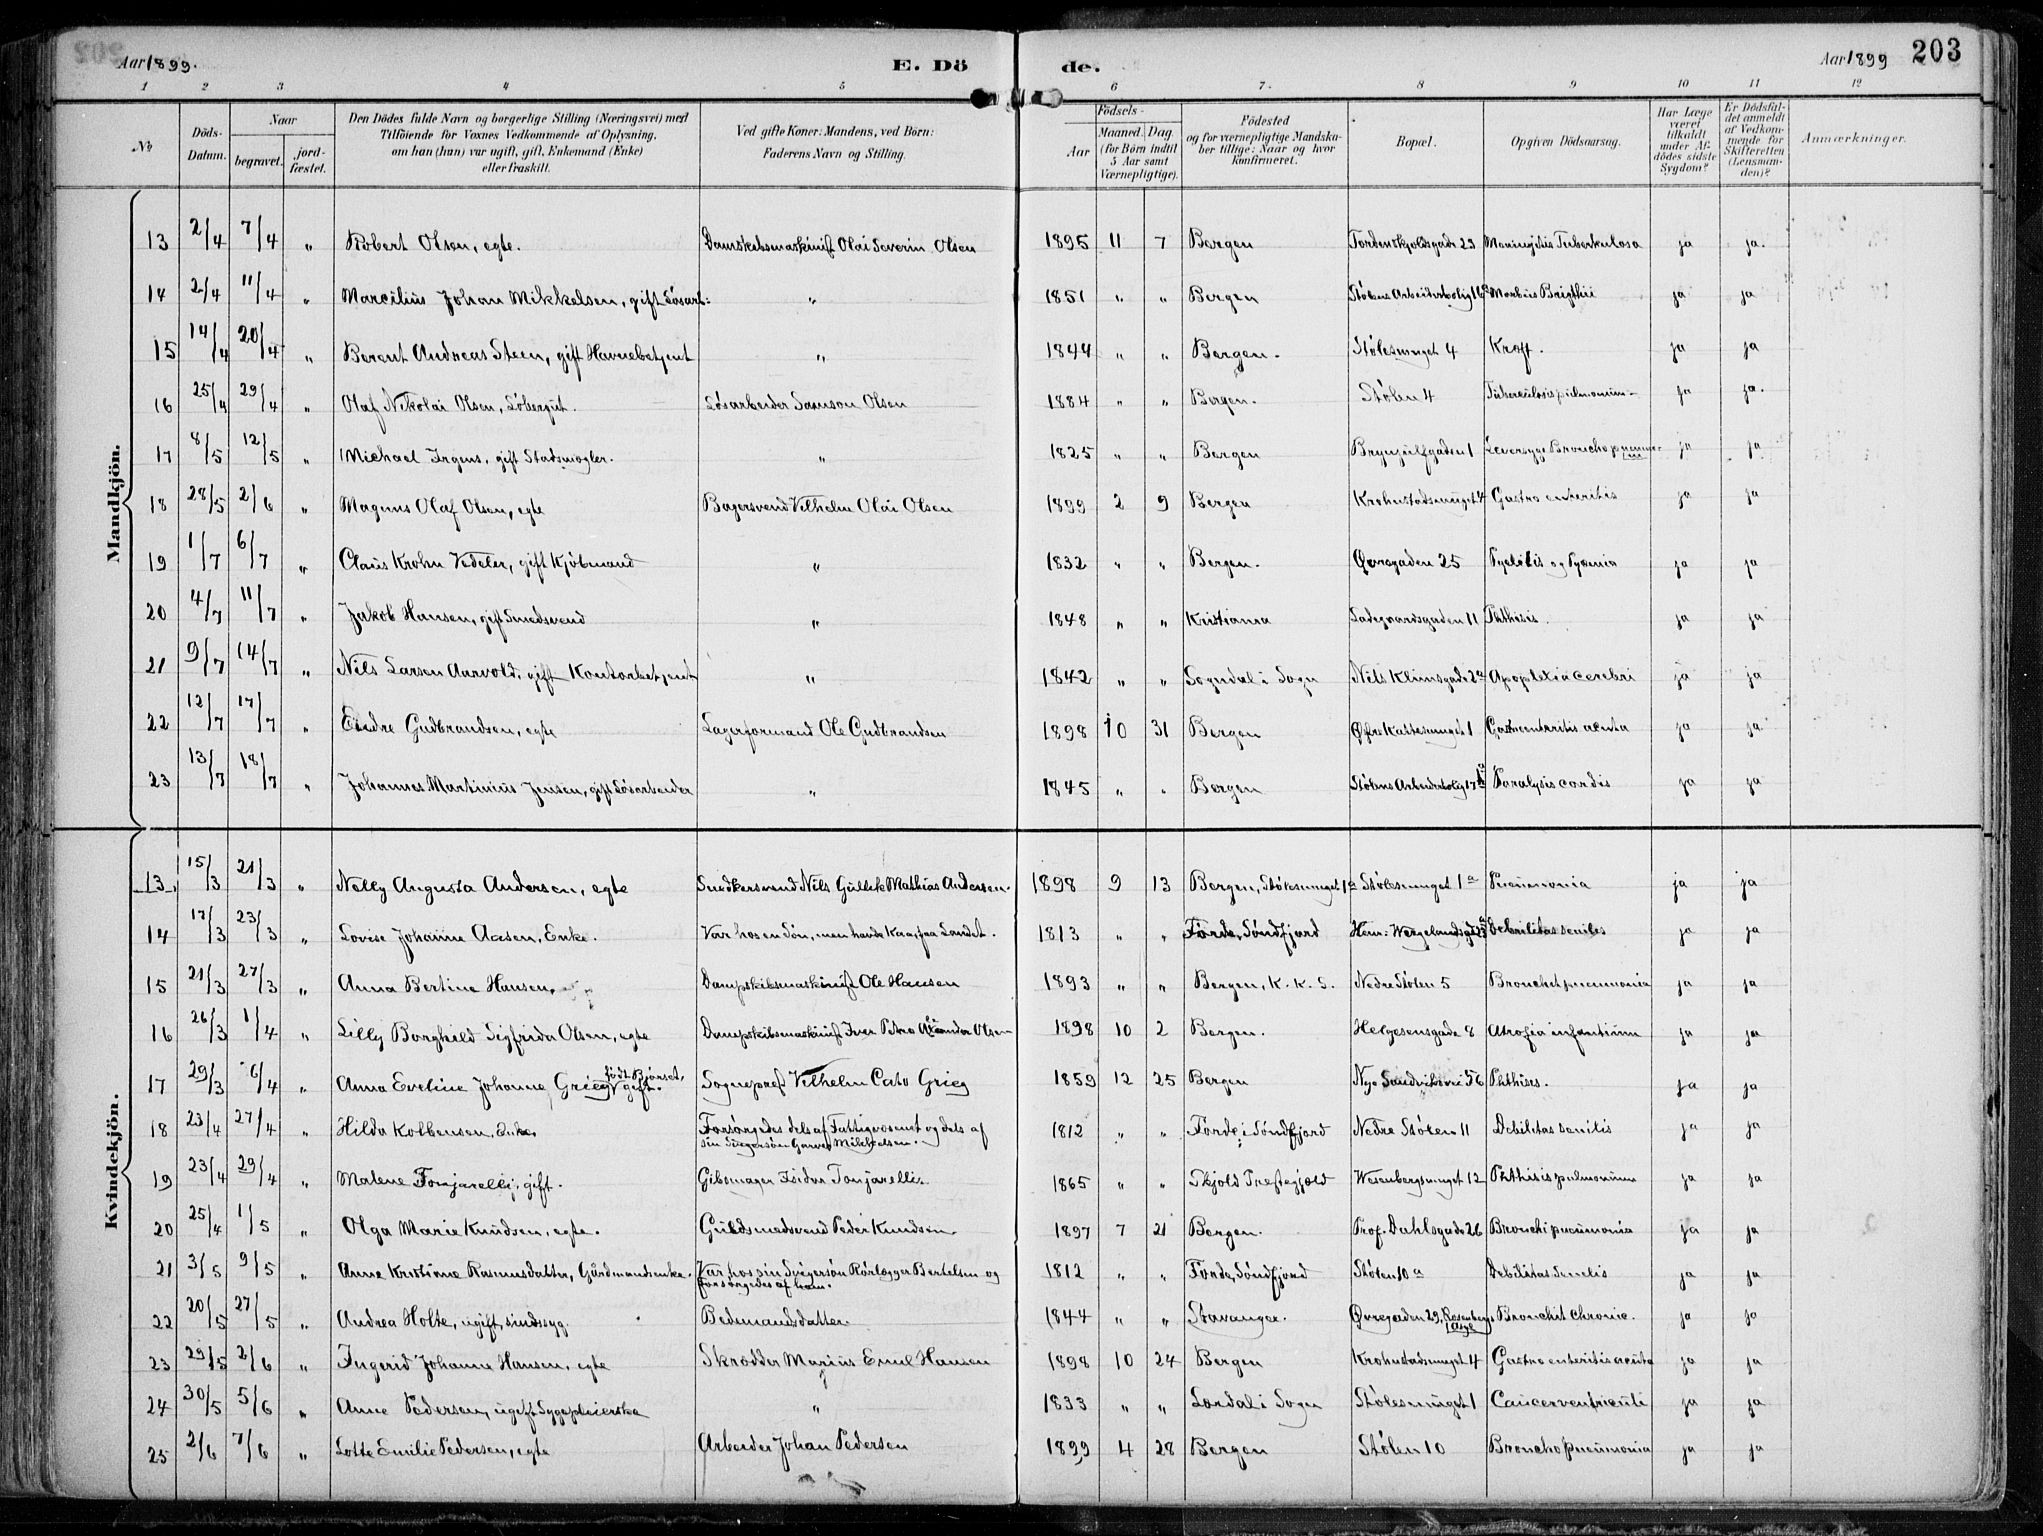 Aar 1899. E. Dö de. Aar 1899 203
1 2 3 4 5 6 7. 8 9 10 11 12
No Döds-Datum. Naar begravet. jord-fæstet. Den Dödes fulde Navn og borgerlige Stilling (Næringsvei) med Tilföiende for Voxnes Vedkommende af Oplysning, om han (hun) var ugift, gift, Enkemand (Enke) eller fraskilt. Ved gifte Koner: Mandens, ved Börn: Faderens Navn og Stilling. Födsels- Aar Maaned. Dag. (for Börn indtil 5 Aar samt Værnepligtige). Födested og for værnepligtige Mandska-ber tillige: Naar og hvor konfirmeret. Bopæl. Opgiven Dödsaarsag. Har Læge været tilkaldt under Af-dödes sidste Sygdom? Er Dödsfal-det anmeldt af Vedkom-mende for Skifteretten (Lensman-den)? Anmærkninger.
Mandkjön.
13 2/4 7/4 " Robert Olsen, egte. Damskibsmaskinist Olai Severin Olsen 1895 11 7 Bergen Tordenskjoldsgade 23 Meningitis Tuberkulosa ja ja.
14 2/4 11/4 " Marcilius Johan Mikkelsen, gift Løsarb: " 1851 " " Bergen Stölens Arbeiderbolig 16 Morbus Brigthii ja ja
15 14/4 20/4 " Berent Andreas Steen, gift Havnebetjent " 1844 " " Bergen. Stölesmuget 4 Kræft. ja ja
16 25/4 29/4 " Olaf Nikolai Olsen, Löbergut. Løsarbeider Samson Olsen 1884 " " Bergen. Stölen 4 Tuberculosis pulmonum ja ja.
17 8/5 12/5 " Michael Irgens, gift Stadsmægler. " 1825 " " Bergen Brynjulfgaden 1 Leversyge Bronchopneumonie ja ja
18 28/5 2/6 " Magnus Olaf Olsen, egte Bagersvend Vilhelm Olai Olsen 1899 2 9 Bergen Krohnstadsmuget 4 Gastro enteritis ja ja
19 1/7 6/7 " Claus Krohn Vedeler, gift Kjöbmand " 1832 " " Bergen. Øvregaden 25 Pyelitis og Pyæmia ja ja
20 4/7 11/7 " Jakob Hansen, gift Smedsvend " 1848 " " Kristiania Ladegaardsgaden 11 Phthisis. ja ja
21 9/7 14/7 " Nils Larsen Aarvold, gift Kontorbetjent " 1842 " " Sogndal i Sogn Nils Klimsgade 2a Apoplexia cerebri ja ja
22 12/7 17/7 " Eindre Gudbrandsen, egte Lagerformand Ole Gudbrandsen 1898 10 31 Bergen Øfre Kattesmuget 1 Gastroenteritis acuta ja ja
23 13/7 18/7 " Johannes Martinius Jensen, gift Løsarbeider " 1845 " " Bergen Stölens Arbeiderbolig 17 Paralysis cordis ja ja
Kvindekjön.
13. 15/3 21/3 " Nelly Augusta Andersen, egte Snedkersvend Nils Gullik Mathias Andersen. 1898 9 13 Bergen, Stölesmuget 1a Stölesmuget 1a Pneumonia ja ja
14 17/3 23/3 " Lovise Johanne Aasen, Enke. Var hos en Sön, men havde Kaar paa Landet. 1813 " " Förde, Söndfjord Henr: Wergelandsgd Debilitas seniles ja ja
15 21/3 27/3 " Anna Bertine Hansen, Dampskibsmaskinist Ole Hansen 1893 " " Bergen, K. K. S. Nedre Stölen 5 Bronchit pneumonia ja ja
16 26/3 1/4 " Lilly Borghild Sigfrida Olsen, egte Dampskibsmaskinist Iver Petro Alexander Olsen 1898 10 2 Bergen. Helgesensgade 8 Atrofia infantium ja ja
17 29/3 6/4 " Anna Eveline Johanne Grieg födt Bjönset, gift. Sogneprest Vilhelm Cato Grieg 1859 12 25 Bergen Nye Sandviksvei 56 Phthises. ja ja
18 23/4 27/4 " Hilda Kolbensen, Enke. Forsörgedes dels af Fattigvæsenet og dels af sin Svigersön Garver Mikkelsen. 1812 " " Förde i Söndfjord Nedre Stölen 11 Debilitas senilis ja ja
19 23/4 29/4 " Malene Tonjarelli, gift. Gibsmager Isidor Tonjarelli. 1865 " " Skjold Præstegjæld Wesenbergsmuget 12 Phthisis pulmonum ja ja
20 25/4 1/5 " Olga Marie Knudsen, egte. Guldsmedsvend Peder Knudsen. 1897 7 21 Bergen. Prof. Dahlsgade 26 Bronchi pneumonia ja ja
21 3/5 9/5 " Anne Kristine Rasmusdatter, Gårdmandsenke. Var hos sin Svigersön Rörlægger Bertelsen og forsörgedes af ham. 1812 " " Förde, Söndfjord Stölen 10a Debilitas senilis ja ja
22 20/5 27/5 " Andrea Holte, ugift, sindssyg. Bedemandsdatter. 1844 " " Stavanger. Øvregaden 29, Rosenbergs asyl Bronchit chronic. ja ja
23 29/5 2/6 " Ingerid Johanne Hansen, egte Skrædder Marius Emil Hansen 1898 10 24 Bergen Krohnstadsmuget 4 Gastro enteritis acuta ja ja
24 30/5 5/6 " Anne Pedersen, ugift Sygepleierske " 1833 " " Lærdal i Sogn Stölesmuget 1 Cancer ventriculi ja ja
25 2/6 7/6 " Lotte Emilie Pedersen, egte Arbeider Johan Pedersen 1899 4 28 Bergen Stölen 10 Bronchopneumonia ja ja